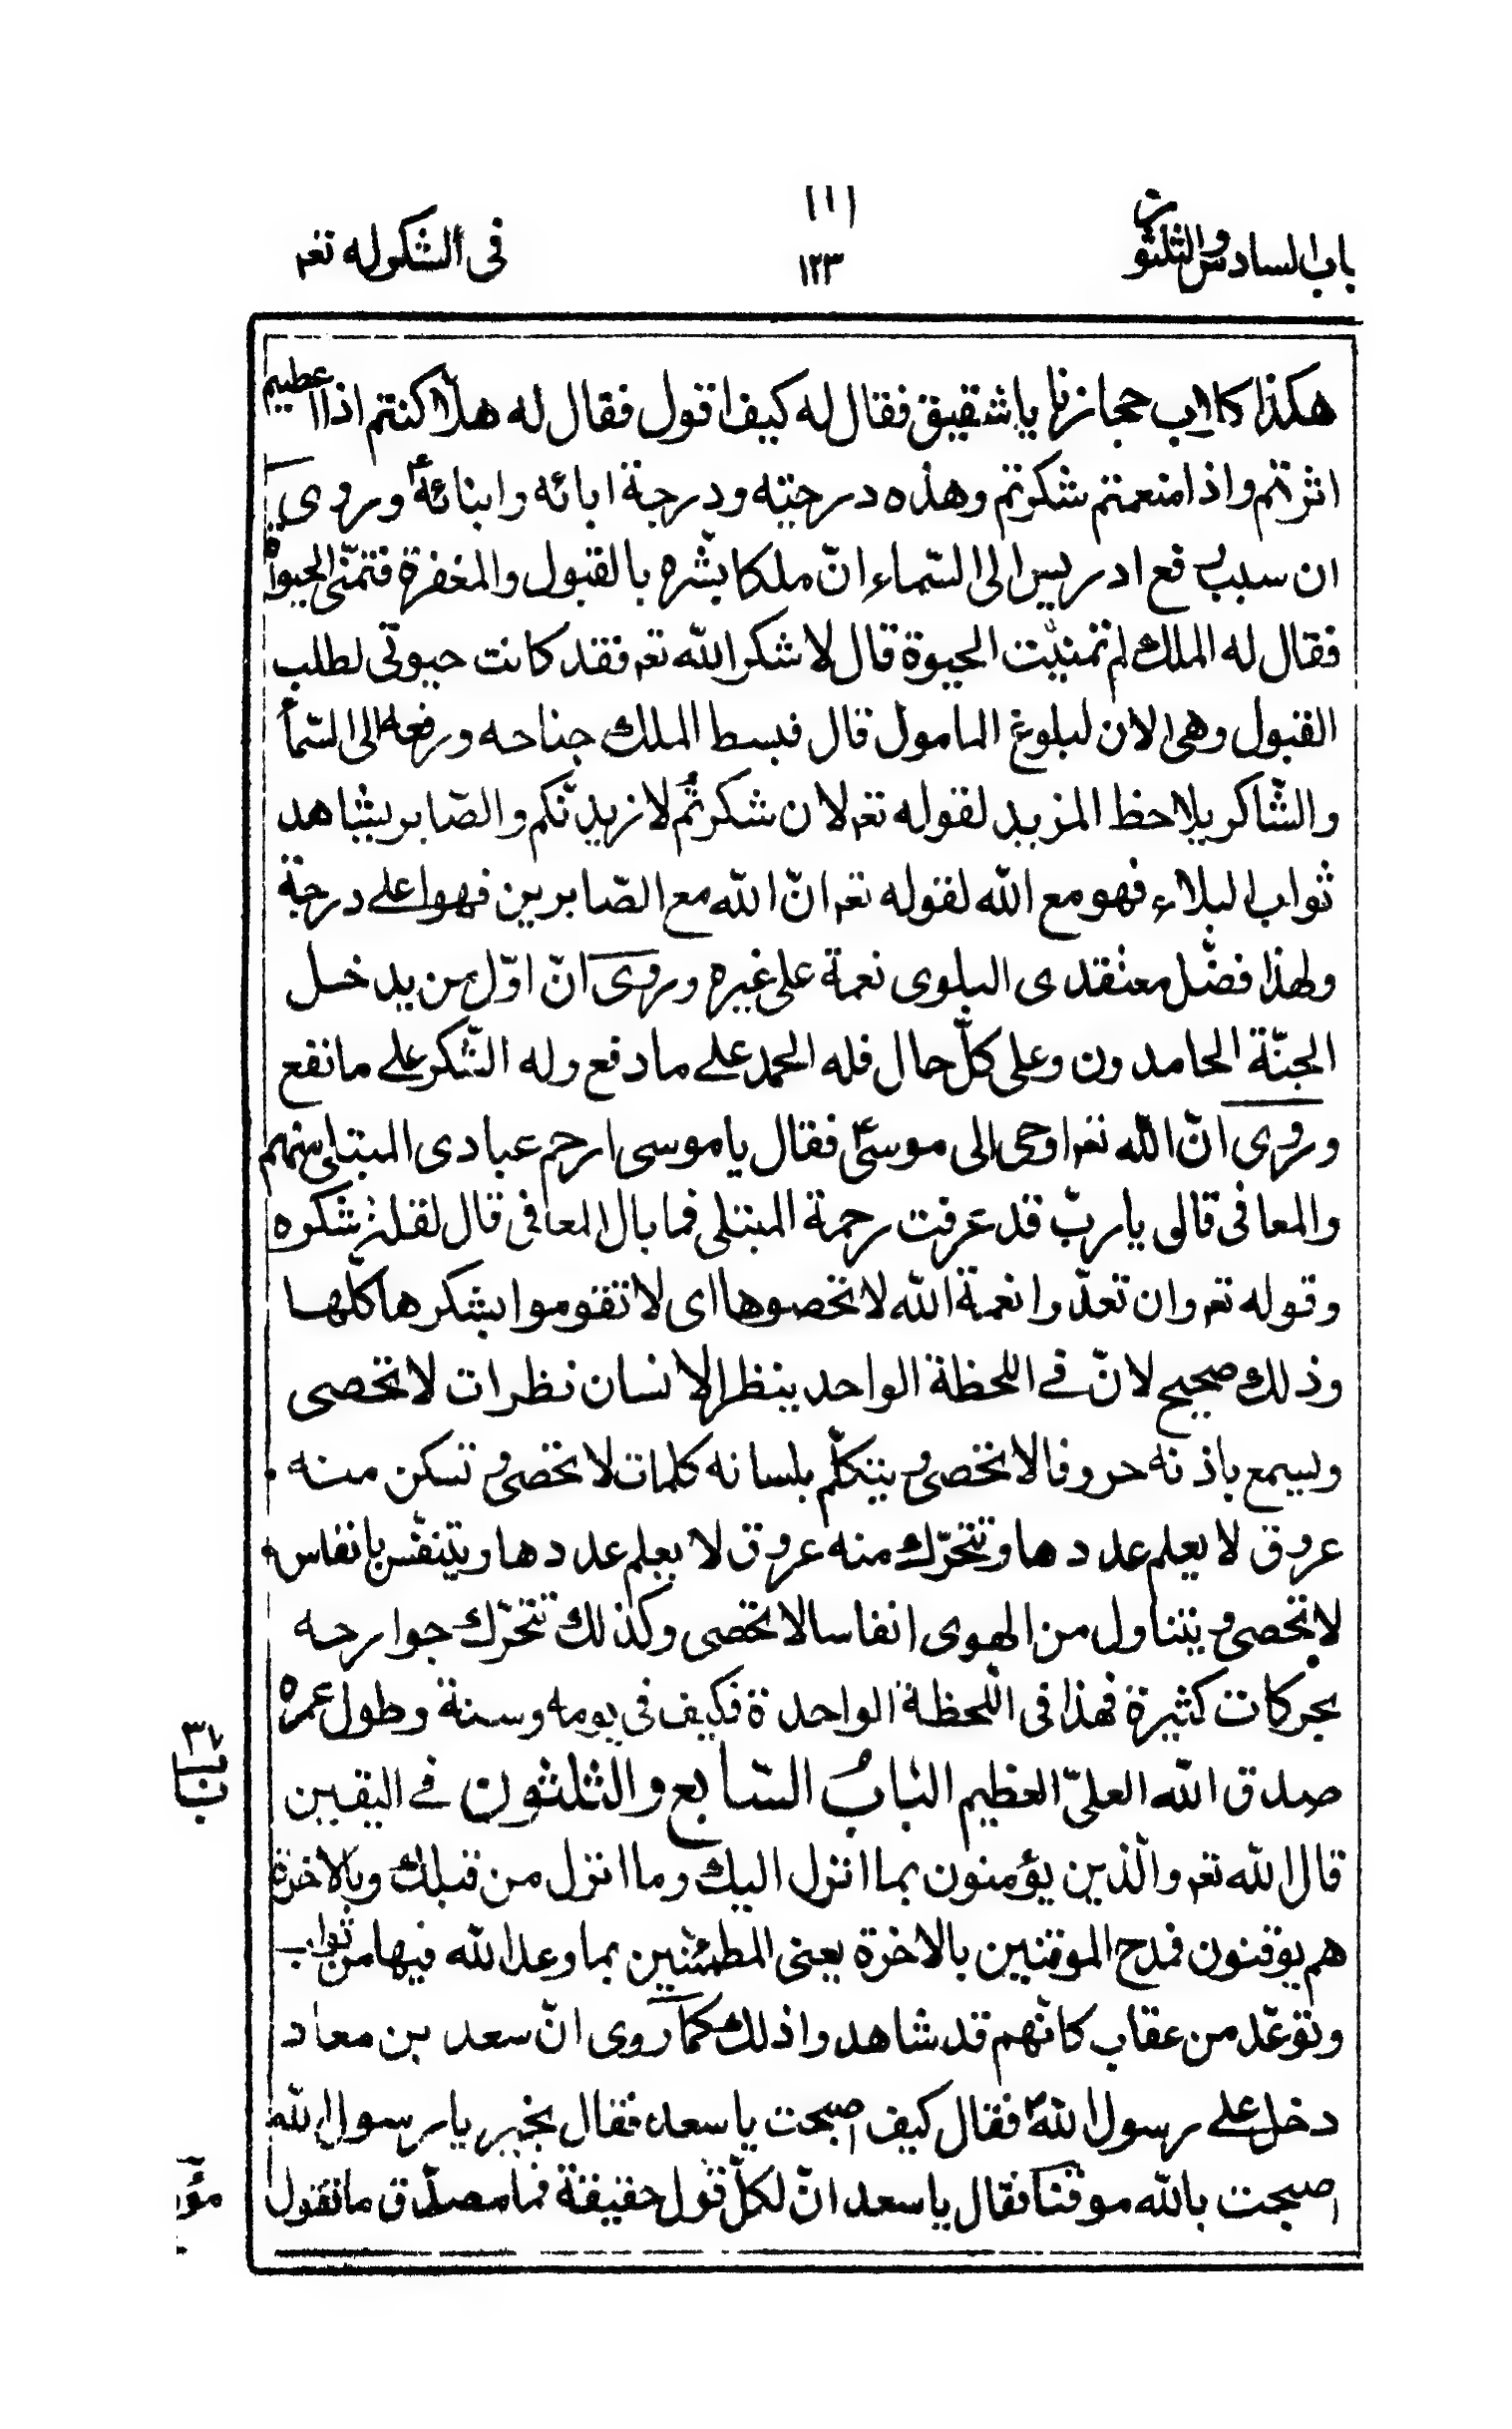 باب السادس والثلثون
١١١
١٢٣
في الشكر له تعہ
هكذا كلاب حجازنا يا شقيق فقال له كيف اقول فقال له هلّا كنتم اذا اعطيتم
اثرتم واذا منعتم شكرتم وهذه درجته ودرجة ابائه وابنائه ع وروى
ان سبب رفع ادريس الى السّماء انّ ملكا بشّره بالقبول والمغفرة فتمنّى الحيوة
فقال له الملك لم تمنيت الحيوة قال لاشكر الله تعہ فقد كانت حيوتى لطلب
القبول وهى الان لبلوغ المامول قال فبسط الملك جناحه ورفعه الى السّماء
والشّاكر يلاحظ المزيد لقوله تعہ لان شكرتُم لازيدنّكم والصّابر يشاهد
ثواب البلاء فهو مع الله لقوله تعہ انّ الله مع الصّابرين فهو اعلى درجة
ولهذا فضّل معتقدى البلوى نعمة على غيره وروى انّ اوّل من يدخل
الجنّة الحامدون وعلى كلّ حال فله الحمد على ما دفع وله الشّكر على ما نفع
وروى انّ الله تعہ اوحى الى موسى ع فقال يا موسى ارحم عبادى المبتلى منهم
والمعافى قال يا ربّ قد عرفت رحمة المبتلى فما بال المعافى قال لقلة شكره
وقوله تعہ وان تعدّوا نعمة الله لا تحصوها اى لا تقوموا بشكرها كلّها
وذلك صحيح لانّ في اللحظة الواحد ينظر الانسان نظرات لا تحصى
ويسمع باذنه حروفا لا تحصى و يتكلّم بلسانه كلمات لا تحصى و تسكن منه
عروق لا يعلم عددها وتتحرّك منه عروق لا يعلم عددها ويتنفّس بانفاس
لا تحصى و يتناول من الهوى انفاسا لا تحصى وكذلك تتحرّك جوارحه
بحركات كثيرة فهذا فى اللّحظة الواحدة فكيف فى يومه وسنة وطول عمره
صدق الله العلىّ العظيم البابُ السّابع والثلثون في اليقين
٣٧
باب
قال الله تعہ والّذين يؤمنون بما انزل اليك وما انزل من قبلك وبالاخرة
هم يوقنون فمدح الموقنين بالاخرة يعنى المطمئنين بما وعد الله فيها من ثواب
وتوعّد من عقاب كانّهم قد شاهدوا ذلك كما روى انّ سعد بن معاد
دخل على رسول الله ص فقال كيف اصبحت يا سعد فقال بخير يا رسول الله
اصبحت بالله موقنا فقال يا سعد انّ لكلّ قول حقيقة فما مصدّق ما تقول